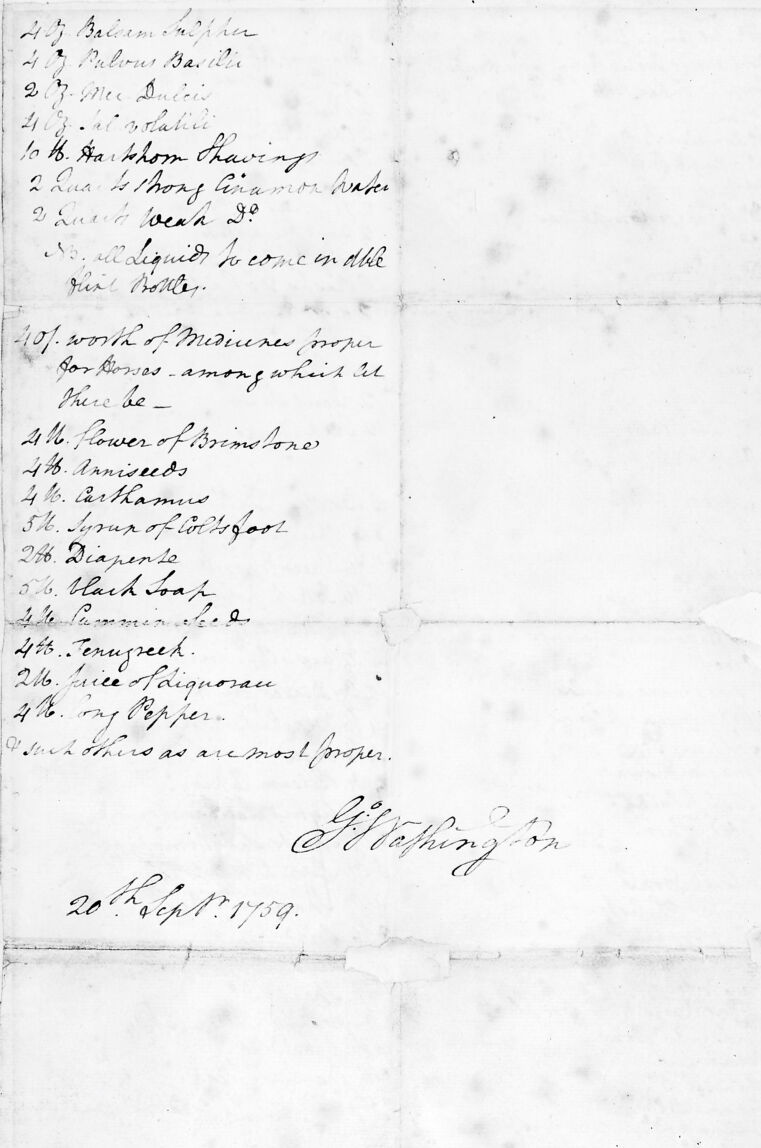 4 Oz. Balsam Sulpher
4 Oz. Pulvus Basilii
2 Oz. Mer Dulcis
4 Oz. Sal volatili
10 lb. Hartshorn Shavings
2 Quarts strong Cinamon Water
2 Quarts weak Do
NB. all Liquids to come in dble
flint Bottles.
40/. worth of Medicines proper
for Horses – among which let
there be –
4 lb. flower of Brimstone
4 lb. Anniseeds
4 lb. Carthamus
5 lb. Syrup of Coltsfoot
2 lb. Diapente
5 lb. black Soap
4 lb. Cummin Seeds
4 lb. Fenugreek.
2 lb. Juice of Liquorau
4 lb. long Pepper.
& such others as are most proper.
Go: Washington
20th Septr. 1759.